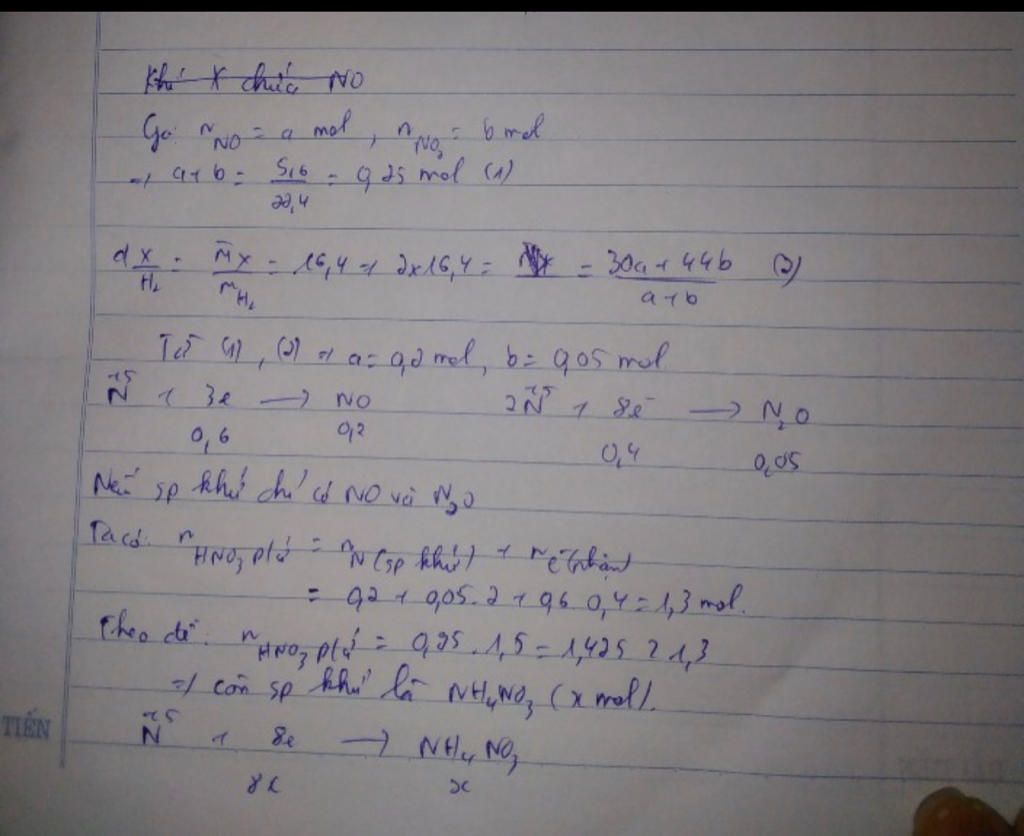 Khí X chứa NO
Gọi n_NO = a mol, n_NO₂ = b mol
=> a+b = 5,6/22,4 = 0,25 mol (1)
d X/H₂ = M̄x/M_H₂ = 16,4 => 2x16,4 = (30a+44b)/(a+b) (2)
Từ (1), (2) => a = 0,2 mol, b = 0,05 mol
N⁺⁵ + 3e → NO 2N⁺⁵ + 8e⁻ → N₂O
0,6 0,2 0,4 0,05
Nếu sp khử chỉ có NO và N₂O
Ta có: n_HNO₃ p/ứ = n_N (sp khử) + n_e (nhận)
= 0,2 + 0,05.2 + 0,6.0,4 = 1,3 mol.
Theo đề: n_HNO₃ p/ứ = 0,95.1,5 = 1,425 > 1,3
=> còn sp khử là NH₄NO₃ (x mol).
N⁺⁵ + 8e → NH₄NO₃
8x x
TIẾN